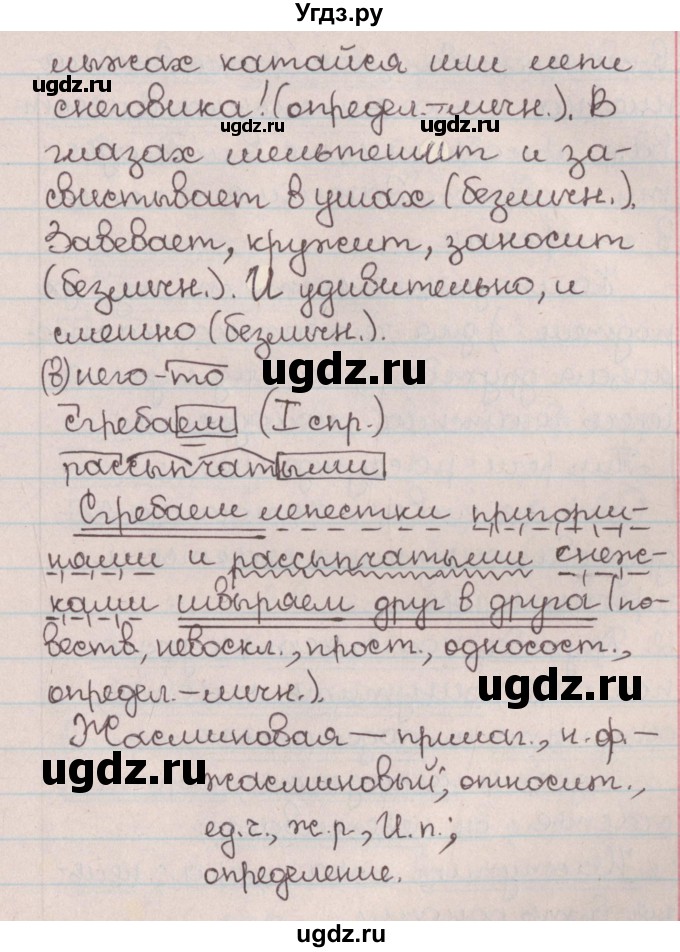 Угдз.ру
лыжах катайся или лепи
снеговика! (определ.-личн.). В
глазах мельтешит и за-
свистывает в ушах (безличн.).
Завевает, кружит, заносит
(безличн.). И удивительно, и
смешно (безличн.).
(в) чего-то
сгребаем (I спр.)
рассыпчатыми
Сгребаем лепестки пригорш-
нями и рассыпчатыми снеж-
ками швыряем друг в друга (по-
веств, невоскл., прост., односост.,
определ.-личн.).
Жасминовая — прилаг., н.ф.-
жасминовый; относит.,
ед.ч., ж.р., И.п.;
определение.
ugdz.ru
ugdz.ru
ugdz.ru
ugdz.ru
ugdz.ru
ugdz.ru
ugdz.ru
ugdz.ru